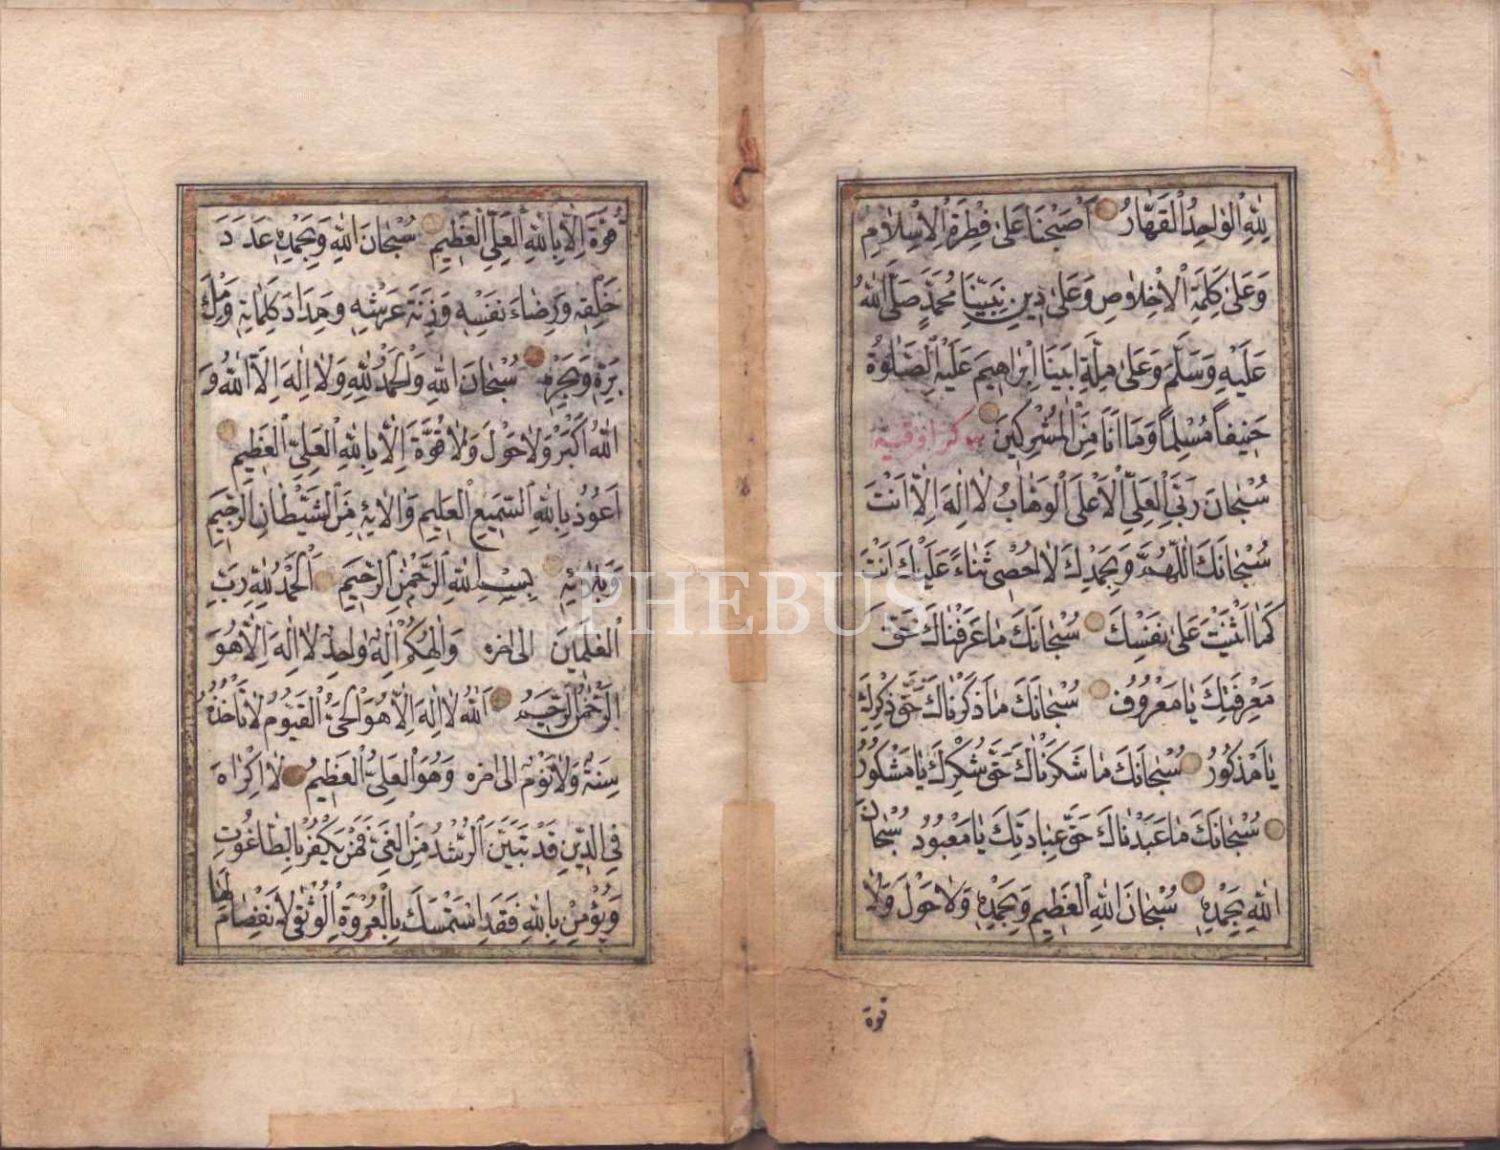 لِلّٰهِ الْوٰاحِدُ الْقَهّٰارُ اَصْبَحْنٰا عَلىٰ فِطْرَةِ الْاِسْلٰامِ
وَعَلىٰ كَلِمَةِ الْاِخْلٰاصِ وَعَلىٰ دِينِ نَبِيِّنٰا مُحَمَّدٍ صَلَّى اللّٰهُ
عَلَيْهِ وَسَلَّمَ وَعَلىٰ مِلَّةِ اَبِينٰا اِبْرٰاهِيمَ عَلَيْهِ الصَّلٰوةُ
حَنِيفاً مُسْلِماً وَمٰا اَنَا مِنَ الْمُشْرِكِينَ
سُبْحٰانَ رَبِّيَ الْعَلِيِّ الْاَعْلَى الْوَهّٰابُ لٰا اِلٰهَ اِلّٰا اَنْتَ
سُبْحٰانَكَ اللّٰهُمَّ وَبِحَمْدِكَ لٰا اُحْصِي ثَنٰاءً عَلَيْكَ اَنْتَ
كَمٰا اَثْنَيْتَ عَلىٰ نَفْسِكَ سُبْحٰانَكَ مٰا عَرَفْنٰاكَ حَقَّ
مَعْرِفَتِكَ يٰا مَعْرُوفُ سُبْحٰانَكَ مٰا ذَكَرْنٰاكَ حَقَّ ذِكْرِكَ
يٰا مَذْكُورُ سُبْحٰانَكَ مٰا شَكَرْنٰاكَ حَقَّ شُكْرِكَ يٰا مَشْكُورُ
سُبْحٰانَكَ مٰا عَبَدْنٰاكَ حَقَّ عِبٰادَتِكَ يٰا مَعْبُودُ سُبْحٰانَ
اللّٰهِ بِحَمْدِهِ سُبْحٰانَ اللّٰهِ الْعَظِيمِ وَبِحَمْدِهِ وَلٰا حَوْلَ وَلٰا
قوة
قُوَّةَ اِلّٰا بِاللّٰهِ الْعَلِيِّ الْعَظِيمِ سُبْحٰانَ اللّٰهِ وَبِحَمْدِهِ عَدَدَ
خَلْقِهِ وَرِضٰاءَ نَفْسِهِ وَزِنَةَ عَرْشِهِ وَمِدٰادَ كَلِمٰاتِهِ وَمِلْأَ
بَرِّهِ وَبَحْرِهِ سُبْحٰانَ اللّٰهِ وَالْحَمْدُ لِلّٰهِ وَلٰا اِلٰهَ اِلَّا اللّٰهُ وَ
اللّٰهُ اَكْبَرُ وَلٰا حَوْلَ وَلٰا قُوَّةَ اِلّٰا بِاللّٰهِ الْعَلِيِّ الْعَظِيمِ
اَعُوذُ بِاللّٰهِ السَّمِيعِ الْعَلِيمِ مِنَ الشَّيْطٰانِ الرَّجِيمِ
بِسْمِ اللّٰهِ الرَّحْمٰنِ الرَّحِيمِ اَلْحَمْدُ لِلّٰهِ رَبِّ
الْعٰلَمِينَ الى اخره وَاِلٰهُكُمْ اِلٰهٌ وٰاحِدٌ لٰا اِلٰهَ اِلّٰا هُوَ
الرَّحْمٰنُ الرَّحِيمُ اَللّٰهُ لٰا اِلٰهَ اِلّٰا هُوَ الْحَيُّ الْقَيُّومُ لٰا تَأْخُذُهُ
سِنَةٌ وَلٰا نَوْمٌ الى اخره وَهُوَ الْعَلِيُّ الْعَظِيمُ لٰا اِكْرٰاهَ
فِي الدِّينِ قَدْ تَبَيَّنَ الرُّشْدُ مِنَ الْغَيِّ فَمَنْ يَكْفُرْ بِالطّٰاغُوتِ
وَيُؤْمِنْ بِاللّٰهِ فَقَدِ اسْتَمْسَكَ بِالْعُرْوَةِ الْوُثْقىٰ لٰا انْفِصٰامَ لَهٰا
PHEBUS